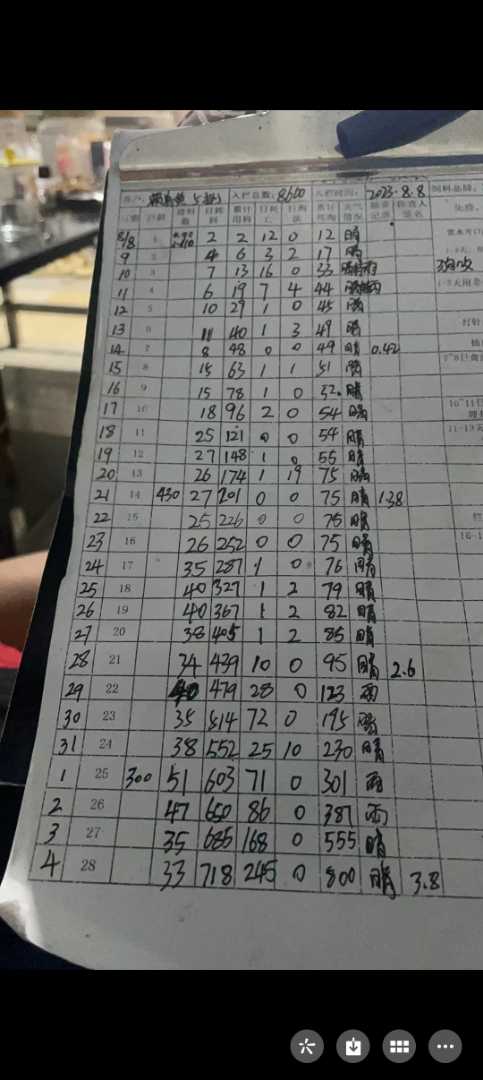 入栏总数: 8600 入栏时间: 2023.8.8 饲料品牌:
日期 日龄 进料数 日耗料 累计用料 日死亡 日淘汰 累计死淘 天气情况
8/8 1 2 2 12 0 12 晴
9 2 4 6 3 2 17 晴
10 3 7 13 16 0 33
11 4 6 19 7 4 44
12 5 10 29 1 0 45 晴
13 6 11 40 1 3 49 晴
14 7 8 48 0 0 49 晴 0.42
15 8 15 63 1 1 51 晴
16 9 15 78 1 0 52 晴
17 10 18 96 2 0 54 晴
18 11 25 121 0 0 54 晴
19 12 27 148 1 0 55 晴
20 13 26 174 1 19 75 晴
21 14 430 27 201 0 0 75 晴 138
22 15 25 226 0 0 75 晴
23 16 26 252 0 0 75 晴
24 17 35 287 1 0 76 晴
25 18 40 327 1 2 79 晴
26 19 40 367 1 2 82 晴
27 20 38 405 1 2 85 晴
28 21 34 439 10 0 95 晴 2.6
29 22 40 479 28 0 123 雨
30 23 35 514 72 0 195 晴
31 24 38 552 25 10 230 晴
1 25 300 51 603 71 0 301 雨
2 26 47 650 86 0 387 雨
3 27 35 685 168 0 555 晴
4 28 33 718 245 0 800 晴 3.8